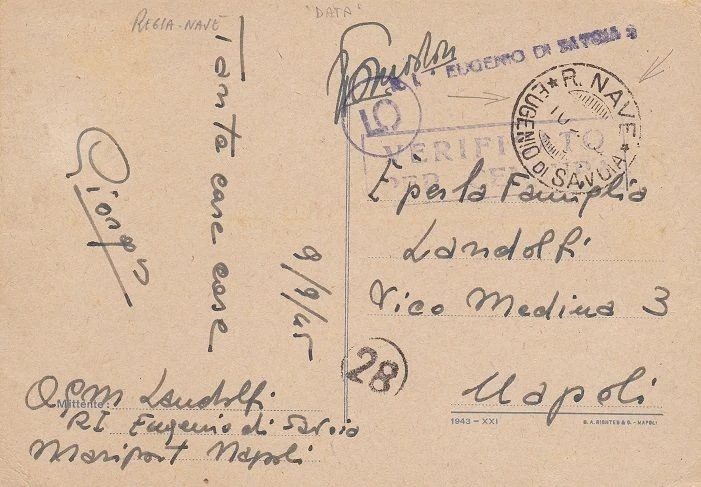 REGIA-NAVE
"DATA"
Tante care cose
Giorgio
9/9/45
EUGENIO DI SAVOIA
R. NAVE
EUGENIO DI SAVOIA
10
VERIFICATO
PER CENSURA
È per la Famiglia
Landolfi
Vico Medina 3
Napoli
28
Mittente:
Landolfi
RI Eugenio di Savoia
Mariport Napoli
1943 - XXI
B. A. RICHTER & C. - NAPOLI